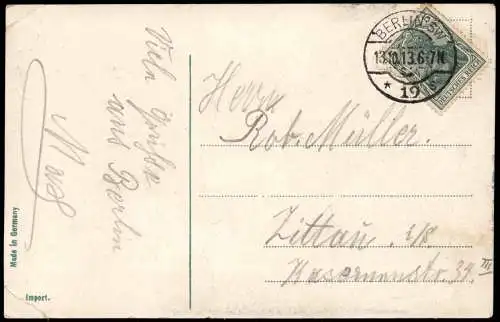 Viele Grüße
aus Berlin
Max
Herrn
Rob. Müller.
Zittau i/S
Kasernenstr. 39. III
BERLIN SW
13.10.13.6-7N.
* 19
DEUTSCHES REICH
Made in Germany
Import.